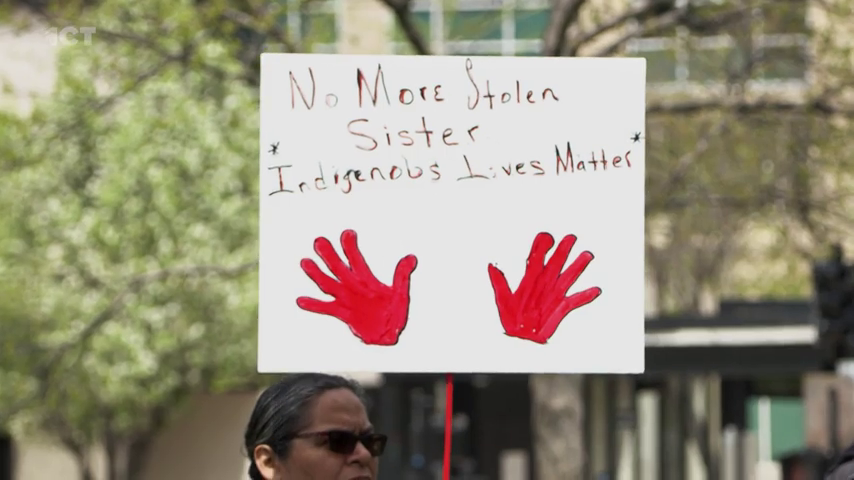 ICT
No More Stolen
Sister
*Indigenous Lives Matter*